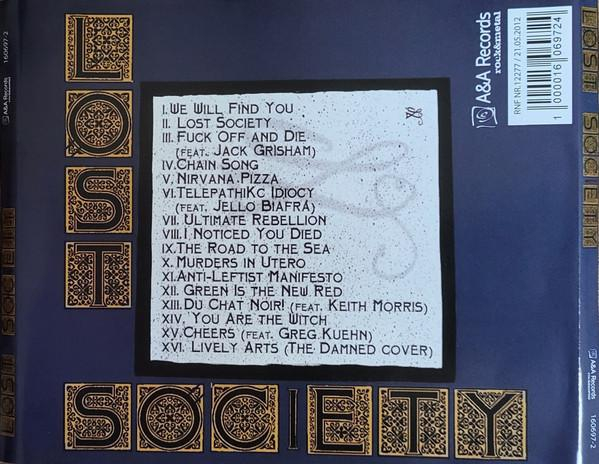 LOST
SOCIETY
I. WE WILL FIND YOU
II. LOST SOCIETY
III. FUCK OFF AND DIE
(FEAT. JACK GRISHAM)
IV. CHAIN SONG
V. NIRVANA PIZZA
VI. TELEPATHIKC IDIOCY
(FEAT. JELLO BIAFRA)
VII. ULTIMATE REBELLION
VIII. I NOTICED YOU DIED
IX. THE ROAD TO THE SEA
X. MURDERS IN UTERO
XI. ANTI-LEFTIST MANIFESTO
XII. GREEN IS THE NEW RED
XIII. DU CHAT NOIR! (FEAT. KEITH MORRIS)
XIV. YOU ARE THE WITCH
XV. CHEERS (FEAT. GREG KUEHN)
XVI. LIVELY ARTS (THE DAMNED COVER)
A&A Records
rock&metal
RNF NR.12277 / 21.05.2012
1 000016 069724
LOST SOCIETY
A&A Records
160697-2
LOST SOCIETY
A&A Records
160697-2